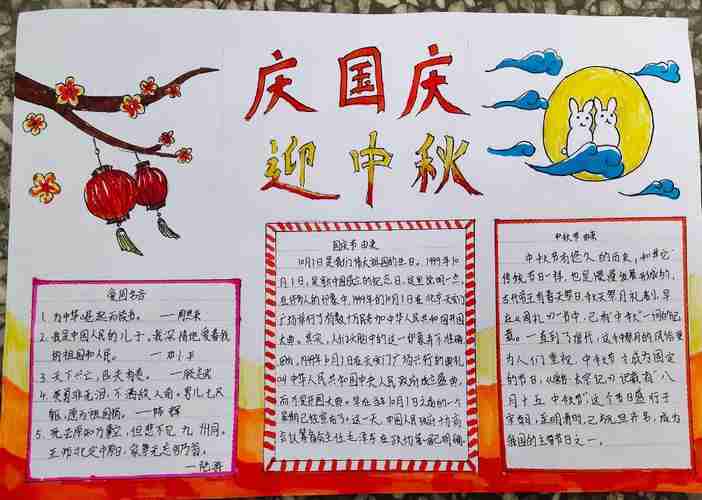 庆国庆
迎中秋
爱国名言
1. 为中华崛起而读书。 ——周恩来
2. 我是中国人民的儿子,我深情地爱着我
的祖国和人民。 ——邓小平
3. 天下兴亡,匹夫有责。 ——顾炎武
4. 英勇非无泪,不洒敌人前。男儿七尺
躯,愿为祖国捐。 ——陈辉
5. 死去原知万事空,但悲不见九州同。
王师北定中原日,家祭无忘告乃翁。
——陆游
国庆节由来
10月1日是我们伟大祖国的生日。1949年10
月1日,是新中国成立的纪念日。这里说明一点,
在许多人的印象中,1949年的10月1日在北京天安门
广场举行了有数十万军民参加中华人民共和国开国
大典。其实,人们头脑中的这一印象并不准确。
因为,1949年10月1日在天安门广场举行的典礼
叫中华人民共和国中央人民政府成立盛典,
而不是开国大典。早在当年10月1日之前的一个
星期已经宣布了。这一天,中国人民政府
会议筹备会主任毛泽东在致
中秋节由来
中秋节有悠久的历史,和其它
传统节日一样,也是慢慢发展形成的,
古代帝王有春天祭日,秋天祭月礼制,早
在《周礼》一书中,已有“中秋”一词的记
载。一直到了唐代,这种祭月的风俗更
为人们重视,中秋节才成为固定
的节日,《唐书·太宗记》记载有“八
月十五中秋节”,这个节日盛行于
宋朝,至明清时,已与元旦齐名,成为
我国的主要节日之一。